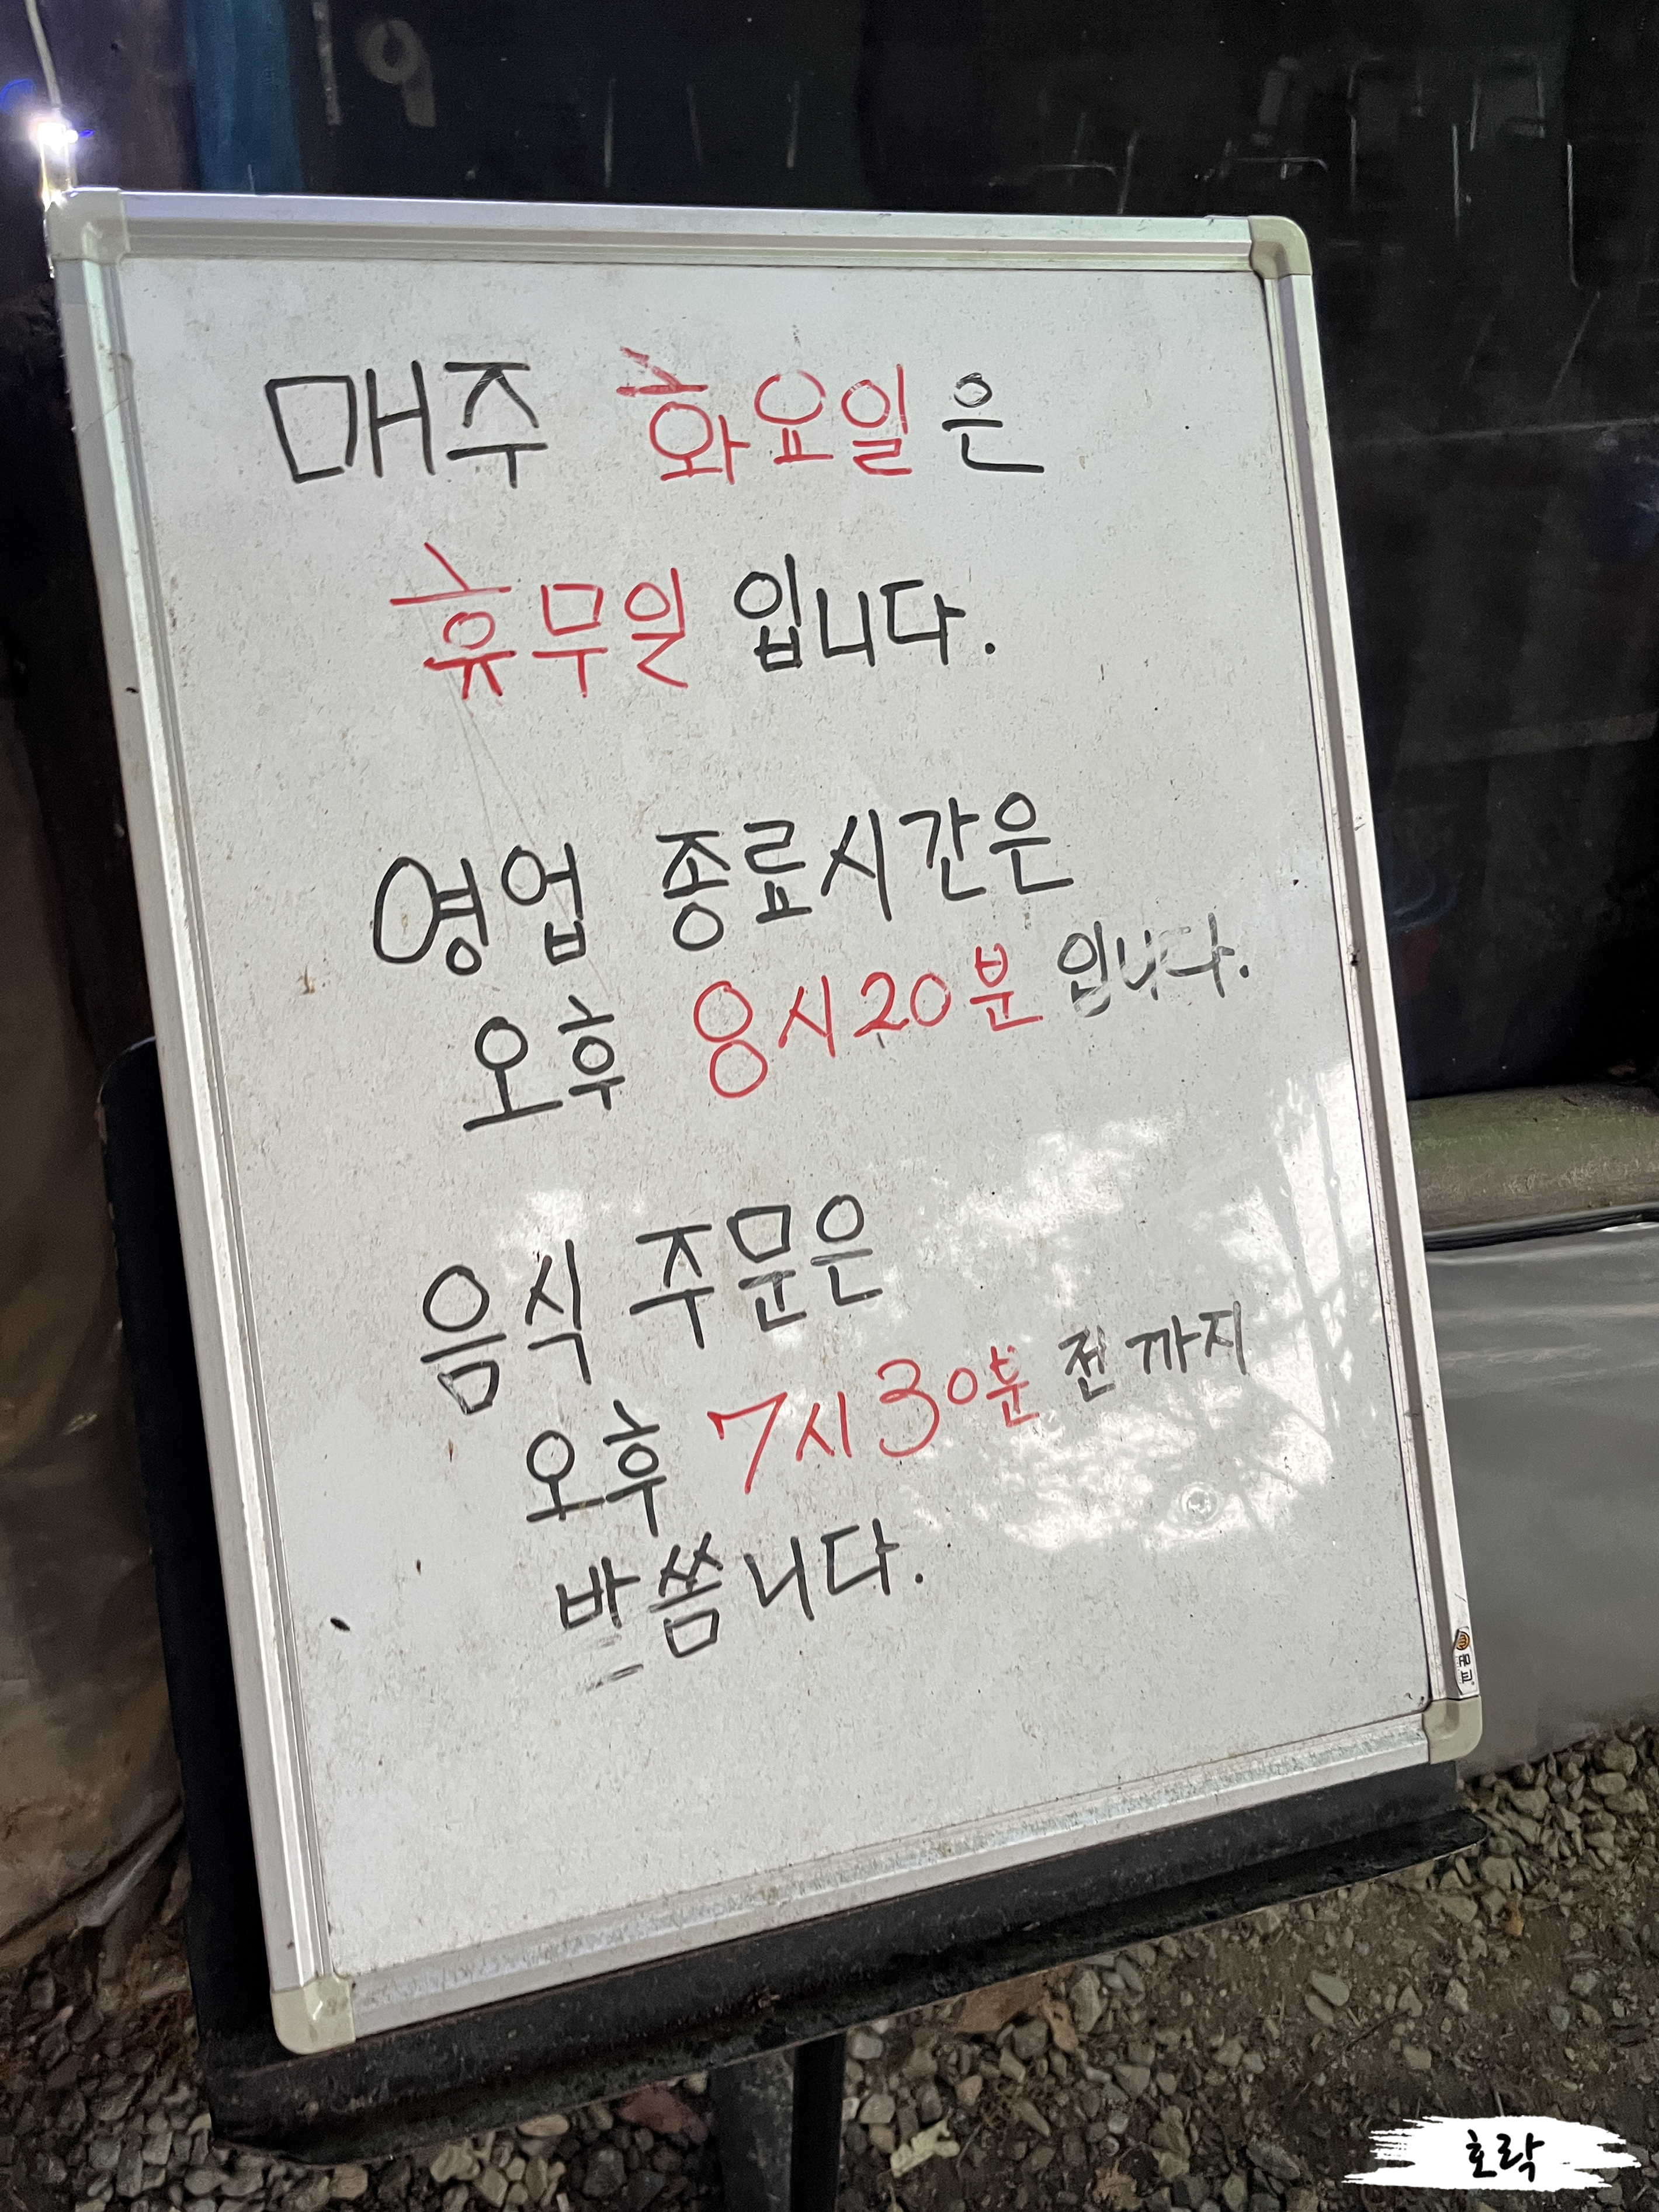 매주 화요일은
휴무일 입니다.
영업 종료시간은
오후 8시20분 입니다.
음식 주문은
오후 7시30분 전까지
받씀니다.
호락